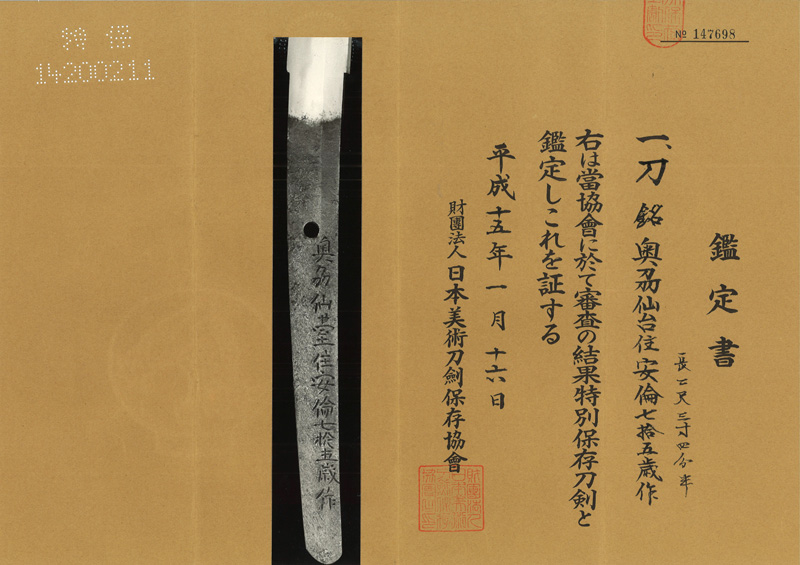 № 147698
特保
14200211
鑑定書
一、刀 銘 奥刕仙台住安倫七拾五歳作
長二尺三寸四分半
右は當協會に於て審査の結果特別保存刀剣と
鑑定しこれを証する
平成十五年一月十六日
財團法人日本美術刀劍保存協會
奥刕仙䑓住安倫七拾五歳作